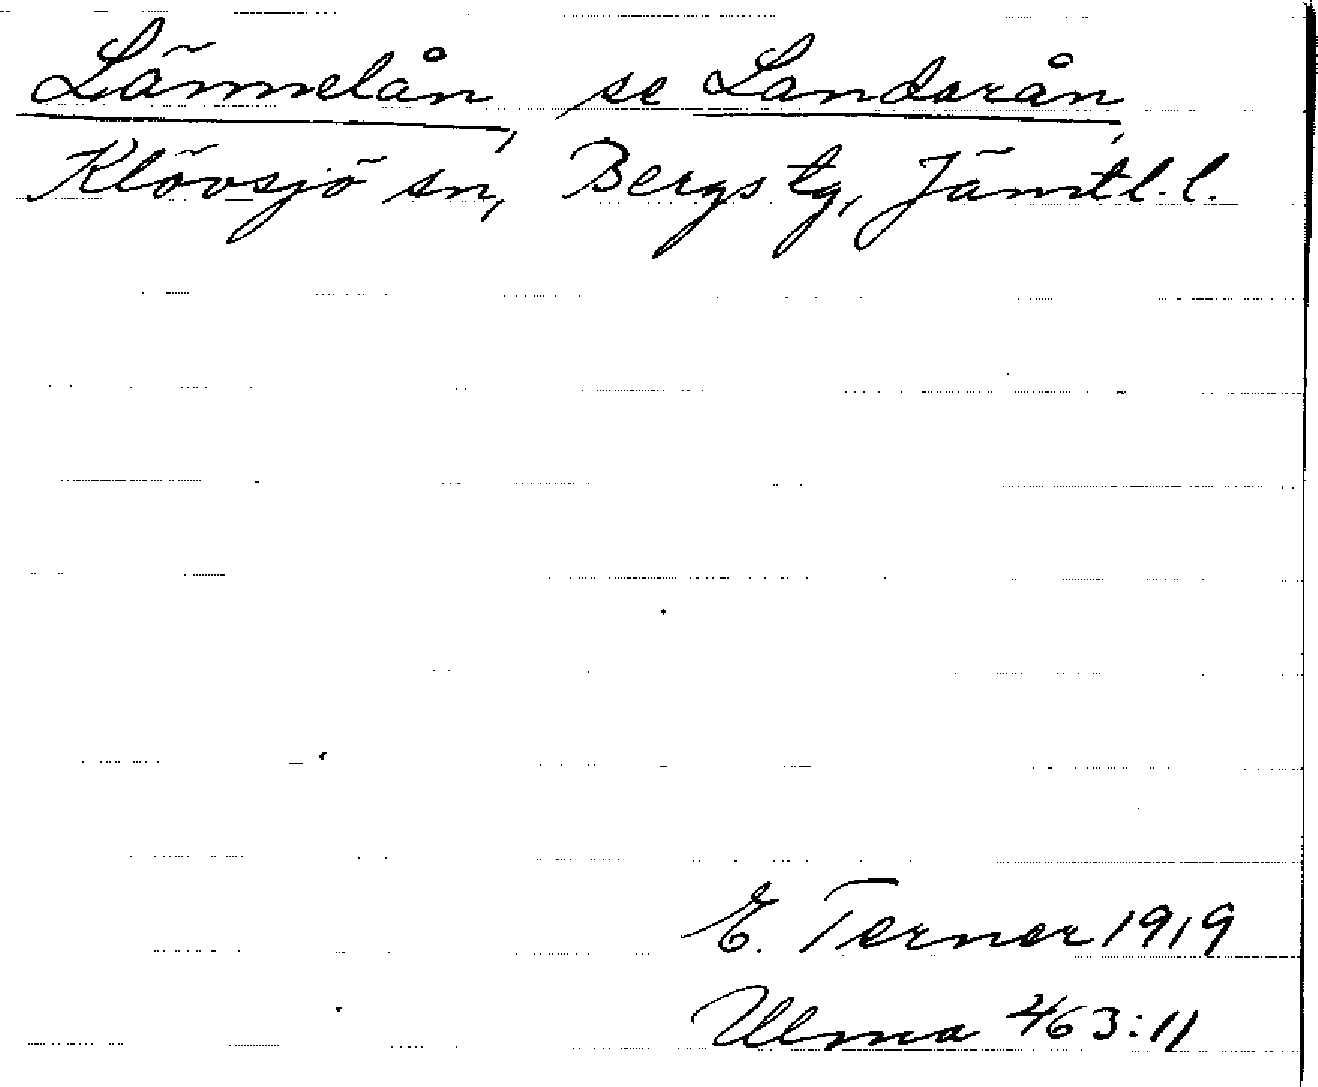 Lännelån, se Landsrån,
Klövsjö sn, Bergs tg, Jämtl. l.
E. Terner 1919
Ulma 463:11